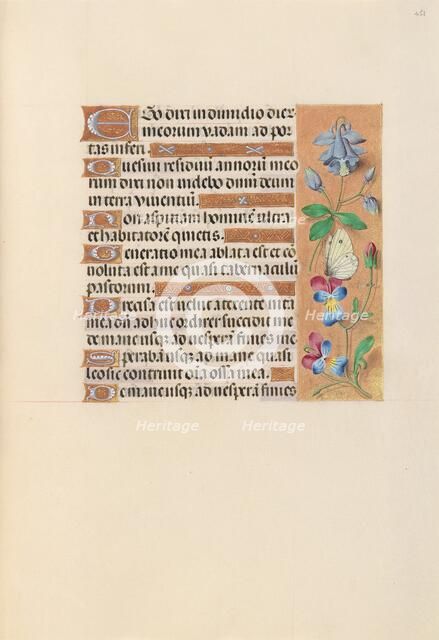 451
Ego dixi in dimidio dier
meorum vadam ad por
tas inferi.
Quesivi residuu annoru meo
rum dixi non videbo dnm deum
in terra viventiu.
Non aspiciam hominem ultra
et habitatore quietis.
Generatio mea ablata est et co
voluta est a me quasi tabernaculu
pastorum.
Precisa est velut a texente vita
mea du adhuc ordirer succidit me
de mane usq ad vespera finies me
Sperabam usq ad mane quasi
leo sic contrivit oia ossa mea.
De mane usq ad vespera finies
Heritage
Heritage
Heritage
Heritage
Heritage
Heritage